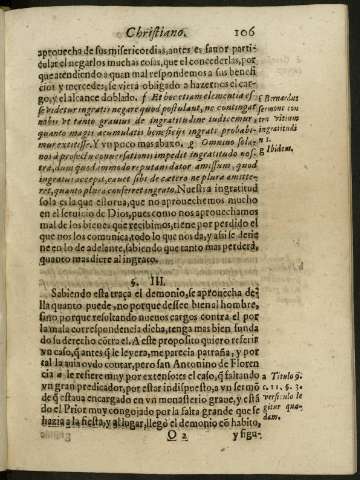 Christiano. 106
aprouecha de sus misericordias, antes es fauor parti-
cular el negarlos muchas cosas, que el concederlas, por
que atendiendo a quan mal respondemos a sus benefi
cios y mercedes, se vierà obligado a hazernos el car-
go, y el alcance doblado. f Et hoc etiam clementia es
se videtur ingratis negare quod postulant, ne contingat
nobis vt tanto grauius de ingratitudine iudicemur,
quanto magis acumulatis beneficijs ingrati probabi-
mur extitisse. Y vn poco mas abaxo. g Omnino solas
noi à profectu conuersationis impedit ingratitudo nos-
tra, dum quod immodo reputans dator amissum, quod
ingratus accepit, cauet sibi de cætero ne plura amitte-
ret, quanto plura conferret ingrato. Nuestra ingratitud
sola es la que estorua, que no aprouechemos mucho
en el seruicio de Dios, pues como nos aprouechamos
mal de los bienes que recibimos, tiene por perdido el
que nos los comunica, todo lo que nos da, y assi le detie
ne en lo de adelante, sabiendo que tanto mas perderà,
quanto mas diere al ingrato.
f Bernardus
sermoni con
tra vitium
ingratitudi
nis.
g Ibidem.
§. III.
Sabiendo esta traça el demonio, se aprouecha de
lla quanto puede, no porque dessee bien al hombre,
sino porque resultando nueuos cargos contra el por
la mala correspondencia dicha, tenga mas bien funda
do su derecho cõtra el. A este proposito quiero referir
vn caso, q̃ antes q̃ le leyera, me parecia patraña, y por
tal la auia oydo contar, pero san Antonino de Floren
cia a le refiere muy por extenso: es el caso, q̃ faltando
vn gran predicador, por estar indispuesto, a vn sermõ
de q̃ estaua encargado en vn monasterio graue, y està
do el Prior muy congojado por la falta grande que se
hazia a la fiesta, y al lugar, llegò el demonio cõ habito,
a Titulo 9.
c. 11. §. 3.
versiculo le
gitur qua-
dam.
O 2 y figu-